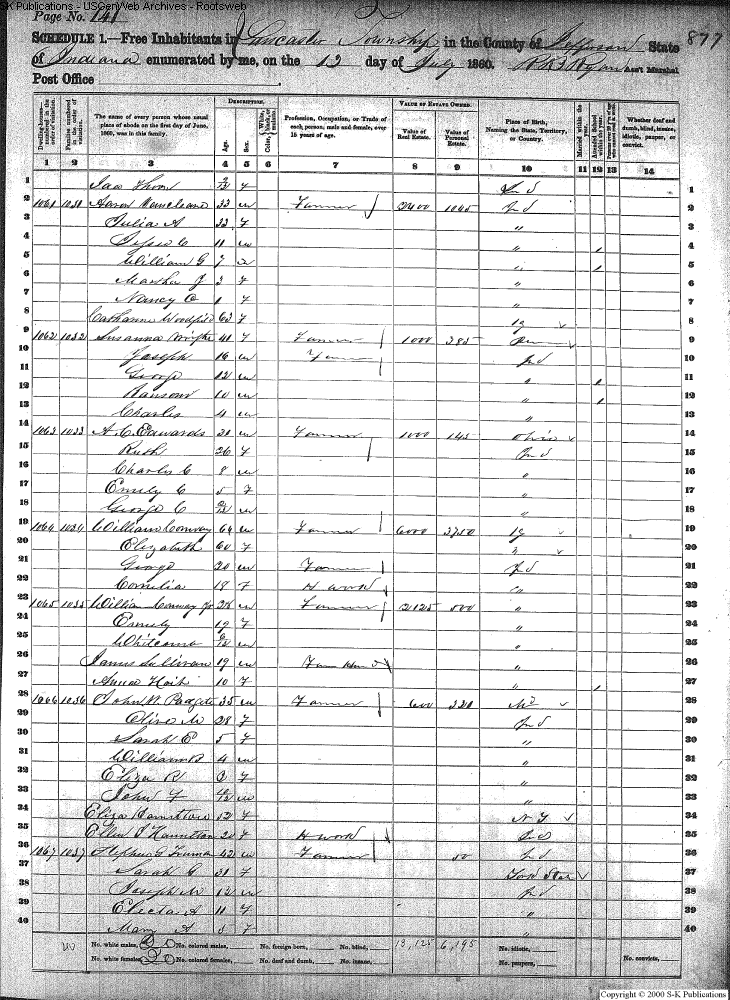 S-K Publications - USGenWeb Archives - Rootsweb
Page No. 141
877
SCHEDULE 1.—Free Inhabitants in Lancaster Township in the County of Jefferson State
of Indiana enumerated by me, on the 12 day of July 1860. Ryan Ass't Marshal
Post Office
DESCRIPTION. VALUE OF ESTATE OWNED.
Dwelling-houses—numbered in the order of visitation. Families numbered in the order of visitation. The name of every person whose usual place of abode on the first day of June, 1860, was in this family. Age. Sex. Color, White, black, or mulatto. Profession, Occupation, or Trade of each person, male and female, over 15 years of age. Value of Real Estate. Value of Personal Estate. Place of Birth, Naming the State, Territory, or Country. Married within the year. Attended School within the year. Whether deaf and dumb, blind, insane, idiotic, pauper, or convict.
1 2 3 4 5 6 7 8 9 10 11 12 13 14
1 F Ind 1
2 1061 1031 Aaron 33 m Farmer 2400 1045 Ind 2
3 Julia A 33 F " 3
4 11 m " / 4
5 William G 7 m " / 5
6 Martha J 3 F " 6
7 Nancy C 1 F " 7
8 Catharine 63 F Ky 8
9 1062 1032 Susanna Wright 41 F Farmer 1000 385 9
10 Joseph 16 m Farmer Ind 10
11 George 12 m " / 11
12 Ransom 10 m " / 12
13 Charles 4 m " 13
14 1063 1033 A. C. Edwards 31 m Farmer 1000 145 Ohio 14
15 Ruth 26 F Ind 15
16 Charles C 8 m " 16
17 Emily C 5 F " 17
18 George C m " 18
19 1064 1034 William Conway 64 m Farmer 6000 3750 Ky 19
20 Elizabeth 60 F " 20
21 George 20 m Farmer Ind 21
22 Cornelia 18 F H work " 22
23 1065 1035 William Conway Jr 28 m Farmer 2125 500 " 23
24 Emily 19 F " 24
25 Whitcomb m " 25
26 James Sullivan 19 m Farm Hand " 26
27 Anna 10 F " / 27
28 1066 1036 John W Padgett 35 m Farmer 600 220 Md 28
29 Olive M 28 F Ind 29
30 Sarah E 5 F " 30
31 William B 4 m " 31
32 Eliza R F " 32
33 John F m " 33
34 Eliza Hamilton F N Y 34
35 Ellen S Hamilton 20 F H work Ind 35
36 1067 1037 Stephen G Truman 42 m Farmer 50 Ind 36
37 Sarah C 31 F York State 37
38 Joseph M 12 m Ind 38
39 Electa A 11 F " 39
40 Mary A F " 40
No. white males, 20 No. colored males, No. foreign born, No. blind, 13,125 6,195 No. idiotic,
No. white females, 20 No. colored females, No. deaf and dumb, No. insane, No. paupers, No. convicts,
Copyright © 2000 S-K Publications